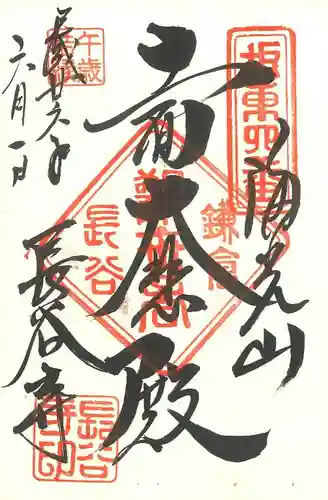 坂東四番
海光山
十一面大悲殿
鎌倉
長谷
午歳
平成廿六年
六月一日
長谷寺
長谷寺印